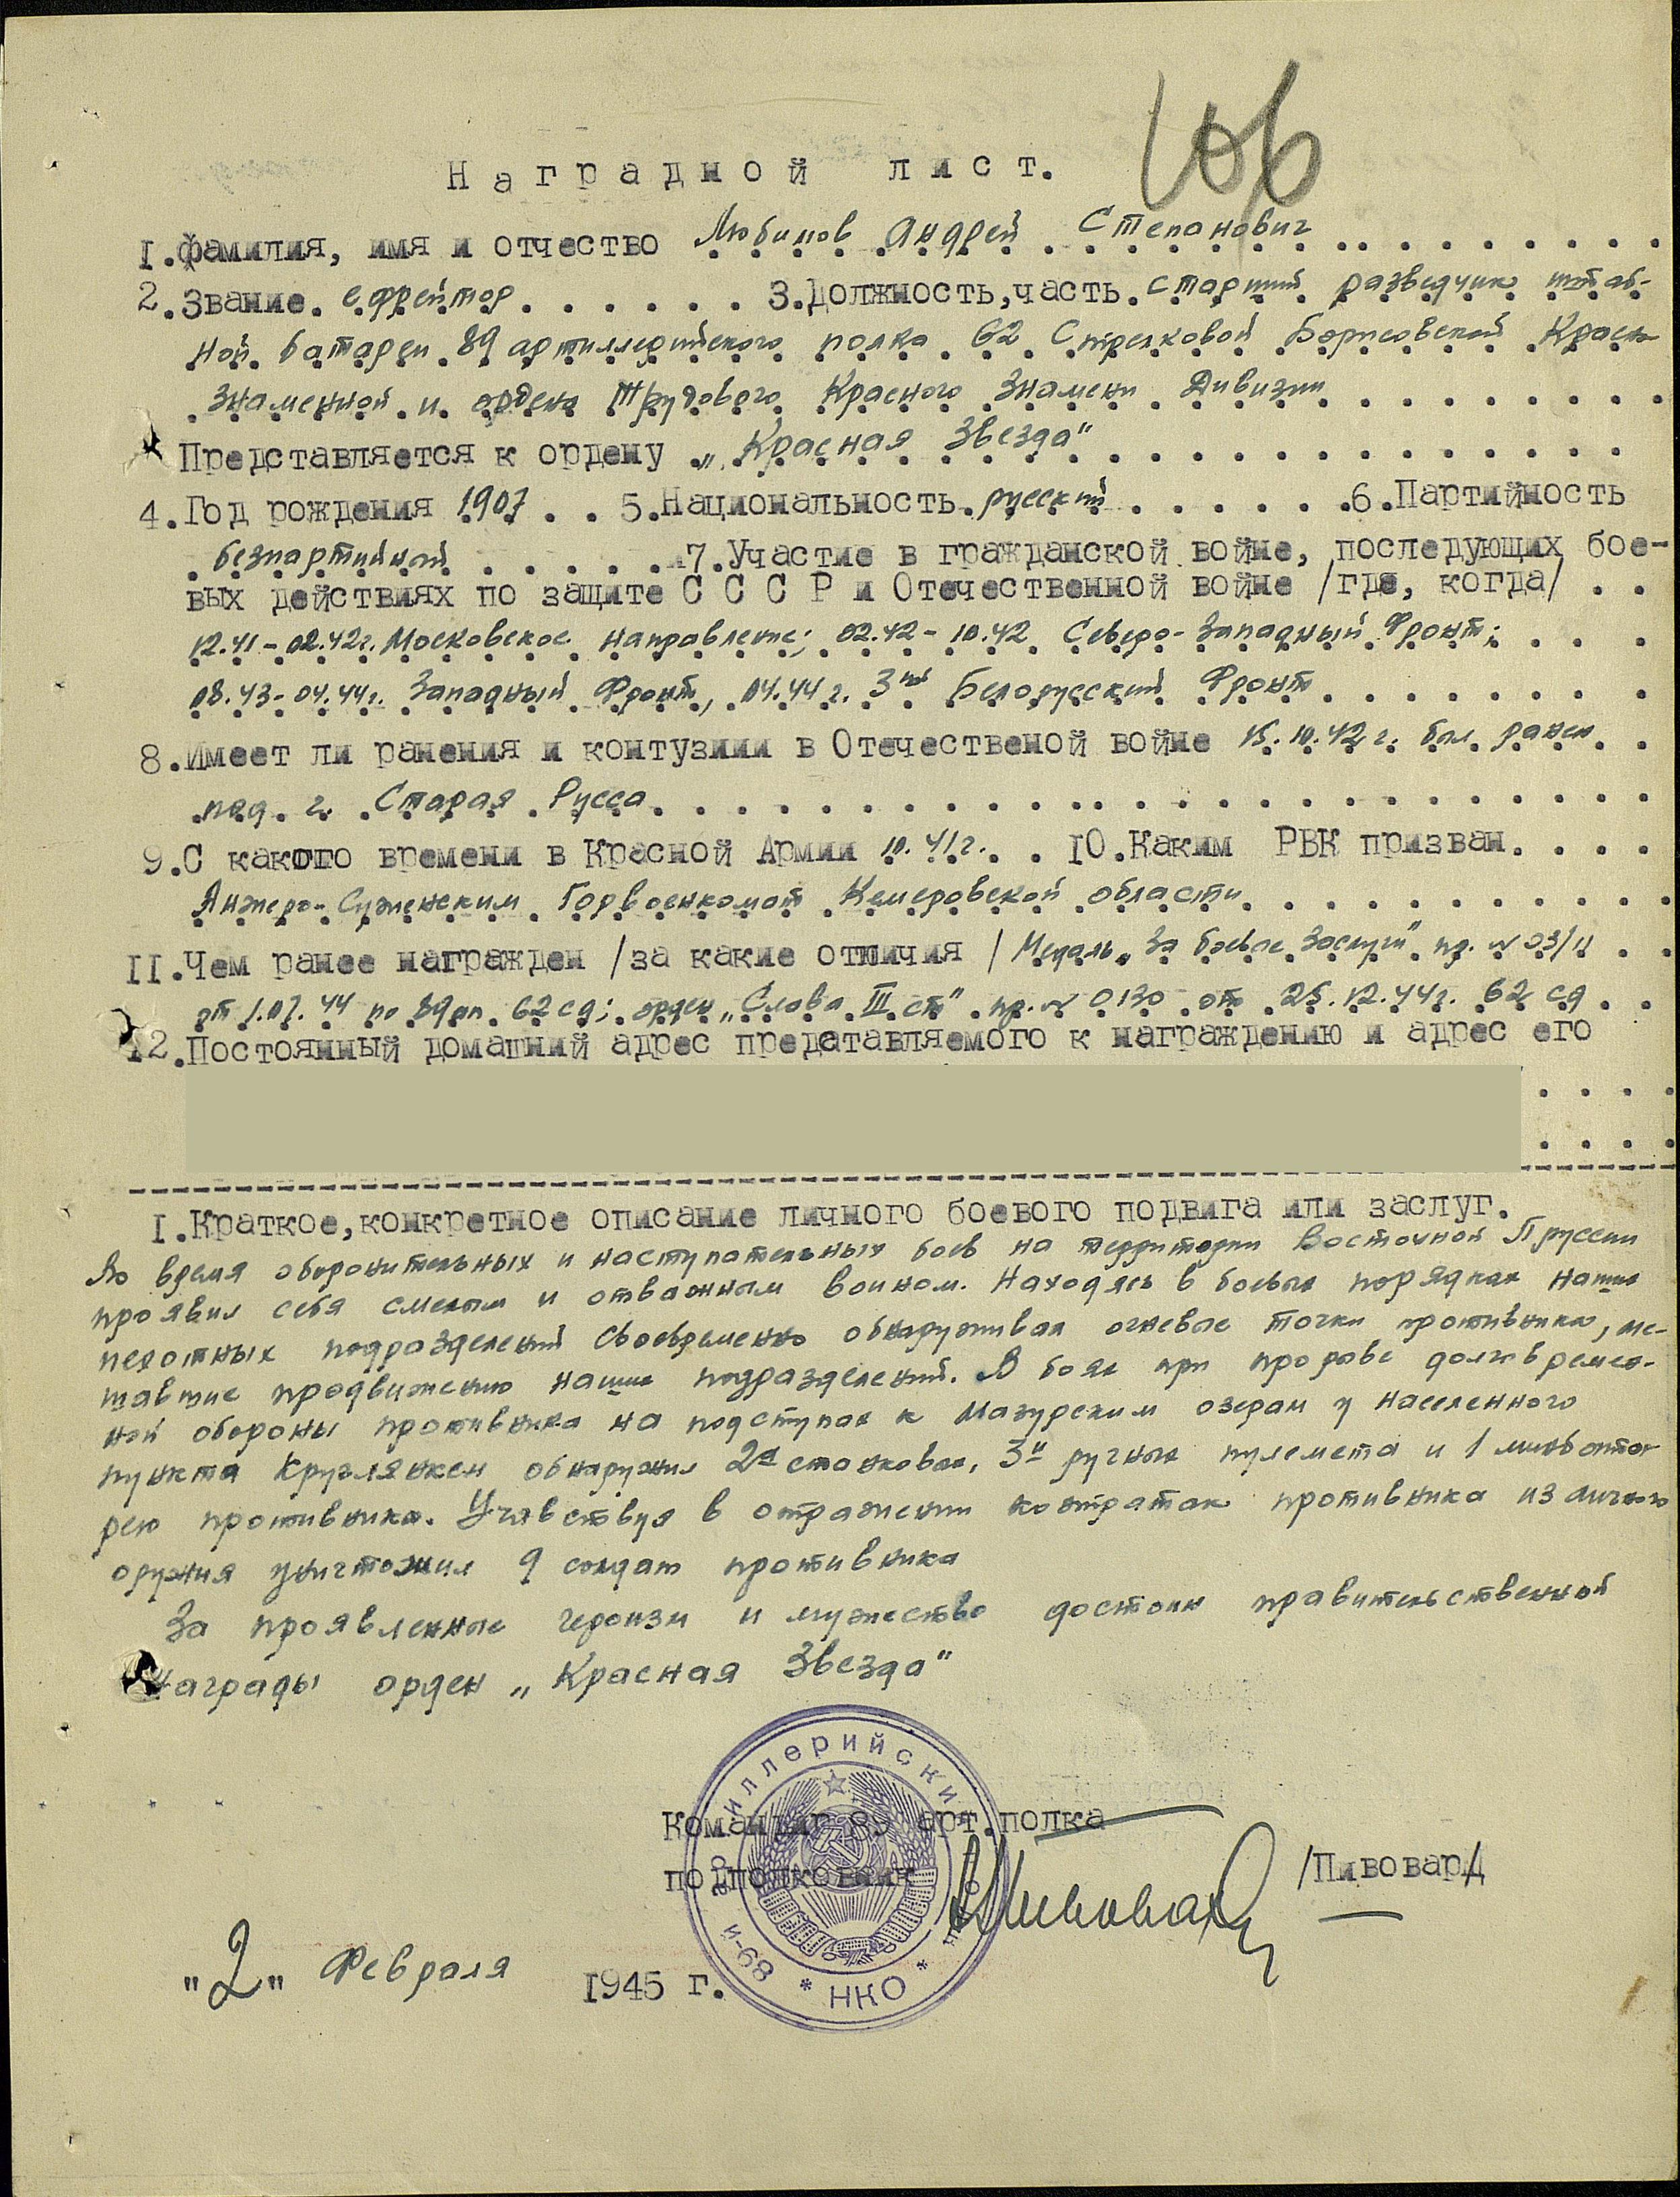 106
Наградной лист.
1.Фамилия, имя и отчество Любимов Андрей Степанович
2.Звание ефрейтор 3.Должность,часть старший разведчик штаб-
ной батареи 89 артиллерийского полка 62 Стрелковой Борисовской Красно
знаменной и ордена Трудового Красного Знамени Дивизии
Представляется к ордену „Красная Звезда"
4.Год рождения 1907 5.Национальность русский 6.Партийность
безпартийной 7.Участие в гражданской войне, последующих бое-
вых действиях по защите С С С Р и Отечественной войне /где, когда/
12.41-02.42г. Московское направление; 02.42-10.42 Северо-Западный Фронт;
08.43-04.44г. Западный Фронт, 04.44г. 3ий Белорусский Фронт
8.Имеет ли ранения и контузии в Отечественой войне 15.10.42г. был ранен
под г. Старая Русса
9.С какого времени в Красной Армии 10.41г. 10.Каким РВК призван
Анжеро-Судженским Горвоенкомат Кемеровской области
11.Чем ранее награжден /за какие отличия / Медаль „За боевые Заслуги" пр. №03/н
от 1.07.44 по 89 ап 62 сд; орден „Слава III ст" пр. № 0130 от 25.12.44г. 62 сд
12.Постоянный домашний адрес представляемого к награждению и адрес его
1.Краткое,конкретное описание личного боевого подвига или заслуг.
Во время оборонительных и наступательных боев на территории Восточной Пруссии
проявил себя смелым и отважным воином. Находясь в боевых порядках наших
пехотных подразделений своевременно обнаруживал огневые точки противника, ме-
шавшие продвижению наших подразделений. В боях при прорыве долговремен-
ной обороны противника на подступах к Мазурским озерам у населенного
пункта Круглянкен обнаружил 2а станковых, 3и ручных пулемета и 1 минбата-
рею противника. Учавствуя в отражении контратак противника из личного
оружия уничтожил 9 солдат противника
За проявленные героизм и мужество достоин правительственной
награды орден „Красная Звезда"
Командир 89 арт.полка
подполковник /Пивовар/
"2" Февраля 1945 г.
89-й артиллерийский * НКО *